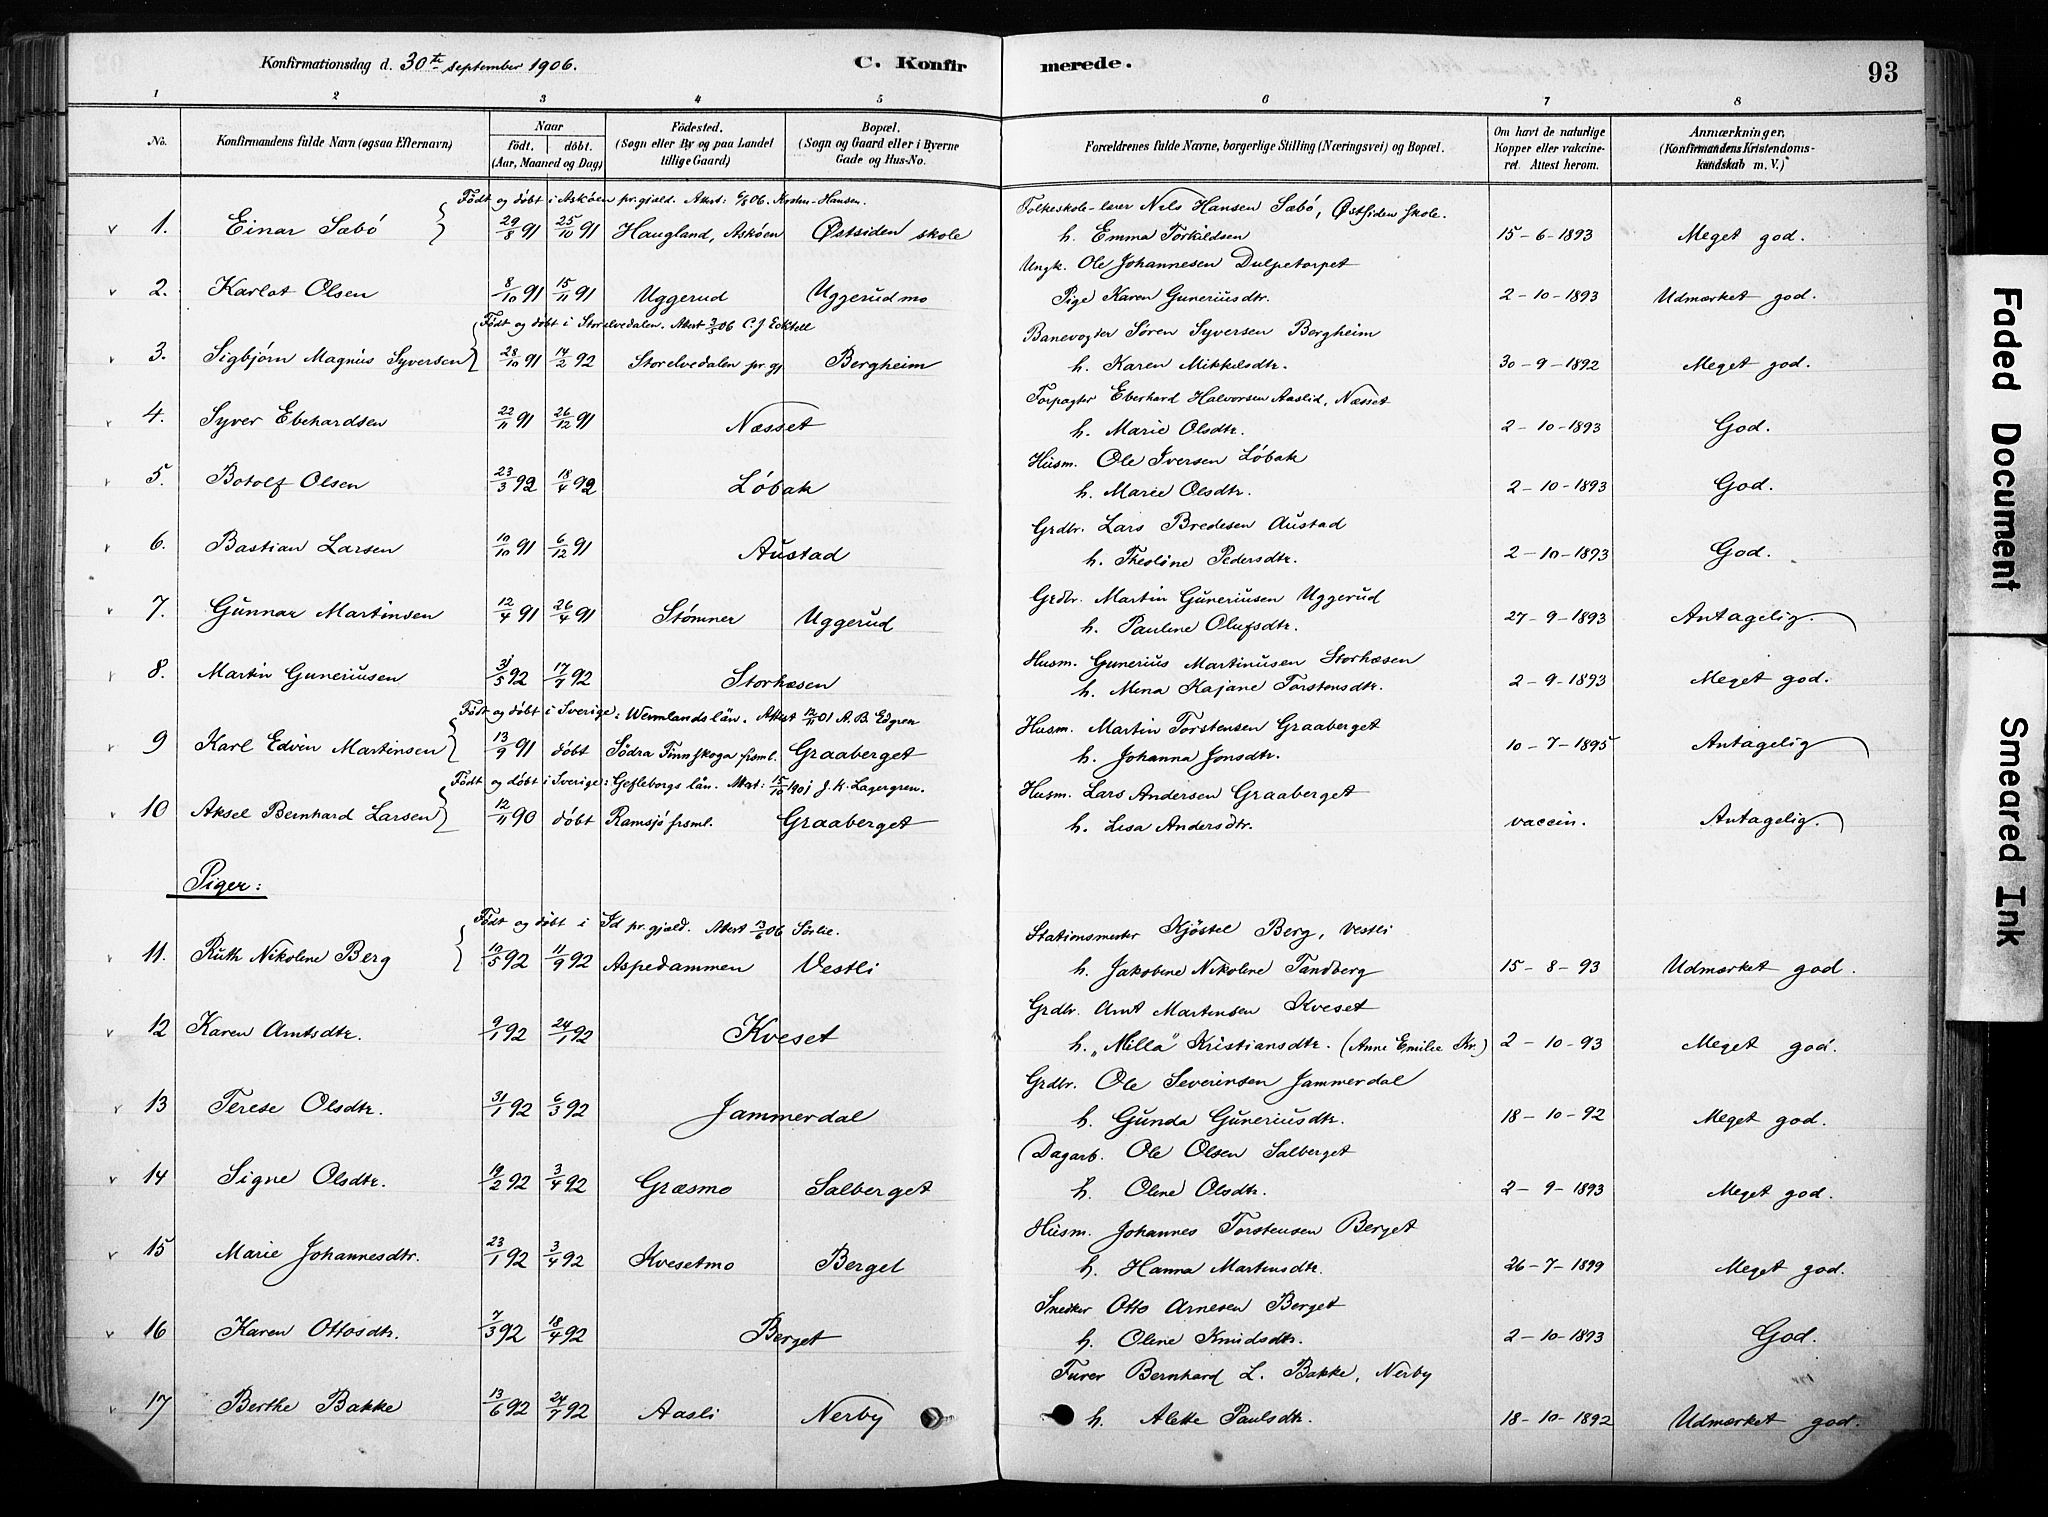 Konfirmationsdag d. 30te september 1906. C. Konfirmerede. 93
1 2 3 4 5 6 7 8
No. Konfirmandens fulde Navn (ogsaa Efternavn) Naar födt. döbt. (Aar, Maaned og Dag) Födested. (Sogn eller By og paa Landet tillige Gaard) Bopæl. (Sogn og Gaard eller i Byerne Gade og Hus-No. Forældrenes fulde Navne, borgerlige Stilling (Næringsvei) og Bopæl. Om havt de naturlige Kopper eller vakcineret. Attest herom. Anmærkninger. (Konfirmandens Kristendomskundskab m. V.)
Födt og döbt i Asköen pr.gjæld. Attest: 6/8 06. Hansen. Folkeskole-lærer Nils Hansen Sæbö, Østsiden skole.
1. Einar Sæbö 29/8 91 25/10 91 Haugland, Asköen Østsiden skole h. Emma Torkildsen 15-6-1893 Meget god.
Ungk. Ole Johannesen Dulpetorpet
2. Karlot Olsen 8/10 91 15/11 91 Uggerud Uggerudmo Pige Karen Guneriusdtr. 2-10-1893 Udmærket god.
Födt og döbt i Storelvedalen. Attest 06 C. J. Banevogter Søren Syversen Bergheim
3. Sigbjørn Magnus Syversen 28/10 91 14/2 92 Storelvedalen pr.gj Bergheim h. Karen Mikkelsdtr. 30-9-1892 Meget god.
Forpagter Eberhard Halvorsen Aaslid, Næsset
4. Syver Ebehardsen 22/11 91 26/12 91 Næsset h. Marie Olsdtr. 2-10-1893 God.
Husm. Ole Iversen Løbak
5. Botolf Olsen 23/3 92 18/4 92 Løbak h. Marie Olsdtr. 2-10-1893 God.
Grdbr. Lars Bredesen Austad
6. Bastian Larsen 10/10 91 6/12 91 Austad h. Theoline Pedersdtr. 2-10-1893 God.
Grdbr. Martin Guneriusen Uggerud
7. Gunnar Martinsen 12/4 91 26/4 91 Stømner Uggerud h. Pauline Olufsdtr. 27-9-1893 Antagelig.
Husm. Gunerius Martinusen Storhæsen
8. Martin Guneriusen 31/5 92 17/7 92 Storhæsen h. Mina Kajane Torstensdtr. 2-9-1893 Meget god.
Födt og döbt i Sverige: Wermlandslän. Attest 12/11 01 A. B. Edgren Husm. Martin Torstensen Graaberget
9 Karl Edvin Martinsen 13/9 91 döbt Södra Finnskoga frsml. Graaberget h. Johanna Jonsdtr. 10-7-1895 Antagelig
Födt og döbt i Sverige: Gefleborgs län. Attest: 15/10 1901 J. K. Lagergren. Husm. Lars Andersen Graaberget
10 Aksel Bernhard Larsen 12/11 90 döbt Ramsjö frsml. Graaberget h. Lisa Andersdtr. vaccin. Antagelig.
Piger:
Födt og döbt i Id pr.gjæld. Attest 13/6 06 Sörlie. Stationsmester Kjöstel Berg, Vestli
11. Ruth Nikoline Berg 10/5 92 11/9 92 Aspedammen Vestli h. Jakobine Nikoline Tandberg 15-8-93 Udmærket god.
Grdbr. Arnt Martinsen Kveset
12 Karen Arntsdtr. 9/1 92 24/1 92 Kveset h. „Milla" Kristiansdtr. (Anne Emilie Kr.) 2-10-93 Meget god.
Grdbr. Ole Severinsen Jammerdal
13 Terese Olsdtr. 31/1 92 6/3 92 Jammerdal h. Gunda Guneriusdtr. 18-10-92 Meget god.
Dagarb. Ole Olsen Salberget
14 Signe Olsdtr. 19/2 92 3/4 92 Græsmo Salberget h. Oline Olsdtr. 2-9-1893 Meget god.
Husm. Johannes Torstensen Berget
15 Marie Johannesdtr. 23/1 92 3/4 92 Kvesetmo Berget h. Hanna Martinsdtr. 26-7-1899 Meget god.
Snedker Otto Arnesen Berget
16 Karen Ottosdtr. 7/3 92 18/4 92 Berget h. Oline Knudsdtr. 2-10-1893 God.
Furer Bernhard L. Bakke, Nerby
17 Berthe Bakke 13/6 92 24/7 92 Aasli Nerby h. Alette Paulsdtr. 18-10-1892 Udmærket god.
Faded Document
Smeared Ink